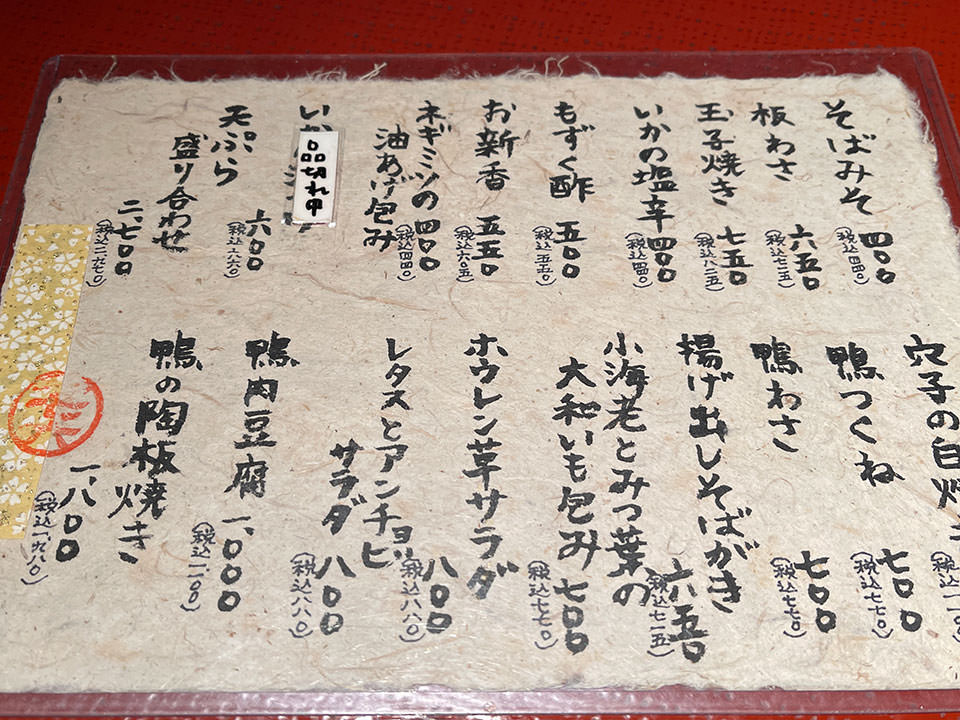 そばみそ 四〇〇
(税込四四〇)
板わさ 六五〇
(税込七一五)
玉子焼き 七五〇
(税込八二五)
いかの塩辛 四〇〇
(税込四四〇)
もずく酢 五〇〇
(税込五五〇)
お新香 五五〇
(税込六〇五)
ネギミソの
油あげ包み 四〇〇
(税込四四〇)
いか
品切れ中
六〇〇
(税込六六〇)
天ぷら
盛り合わせ
二、七〇〇
(税込二、九七〇)
穴子の白焼き
鴨つくね 七〇〇
(税込七七〇)
鴨わさ 七〇〇
(税込七七〇)
揚げ出しそばがき 六五〇
(税込七一五)
小海老とみつ葉の
大和いも包み 七〇〇
(税込七七〇)
ホウレン草サラダ 八〇〇
(税込八八〇)
レタスとアンチョビ
サラダ 八〇〇
(税込八八〇)
鴨肉豆腐 一、〇〇〇
(税込一、一〇〇)
鴨の陶板焼き
一、八〇〇
(税込一、九八〇)